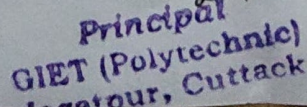 Principal
GIET (Polytechnic)
Cuttack